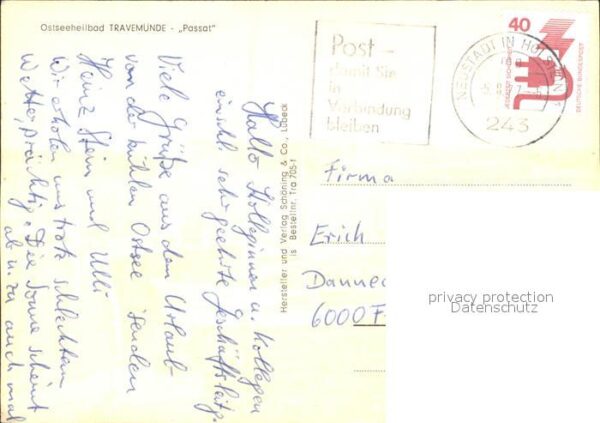 Ostseeheilbad TRAVEMÜNDE - „Passat“
Hallo Kolleginnen u. Kollegen
einschl. sehr geehrte Geschäftsltg.
Viele Grüße aus dem Urlaub
von der kühlen Ostsee senden
Heinz Stein und Ulli
Wir erholen uns trotz schlechtem
Wetter prächtig. Die Sonne scheint
ab u. zu auch mal
Hersteller und Verlag Schöning & Co., Lübeck
Bestellnr. Tra 705
Post –
damit Sie
in
Verbindung
bleiben
NEUSTADT IN HOLST
243
40
DEUTSCHE BUNDESPOST
Firma
Erich
Dannec
6000 F
privacy protection
Datenschutz